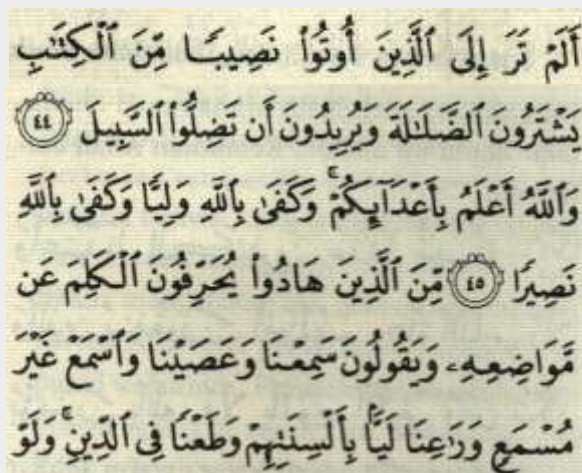 أَلَمْ تَرَ إِلَى ٱلَّذِينَ أُوتُوا۟ نَصِيبًا مِّنَ ٱلْكِتَٰبِ
يَشْتَرُونَ ٱلضَّلَٰلَةَ وَيُرِيدُونَ أَن تَضِلُّوا۟ ٱلسَّبِيلَ ٤٤
وَٱللَّهُ أَعْلَمُ بِأَعْدَآئِكُمْ ۚ وَكَفَىٰ بِٱللَّهِ وَلِيًّا وَكَفَىٰ بِٱللَّهِ
نَصِيرًا ٤٥ مِّنَ ٱلَّذِينَ هَادُوا۟ يُحَرِّفُونَ ٱلْكَلِمَ عَن
مَّوَاضِعِهِۦ وَيَقُولُونَ سَمِعْنَا وَعَصَيْنَا وَٱسْمَعْ غَيْرَ
مُسْمَعٍ وَرَٰعِنَا لَيًّۢا بِأَلْسِنَتِهِمْ وَطَعْنًا فِى ٱلدِّينِ ۚ وَلَوْ